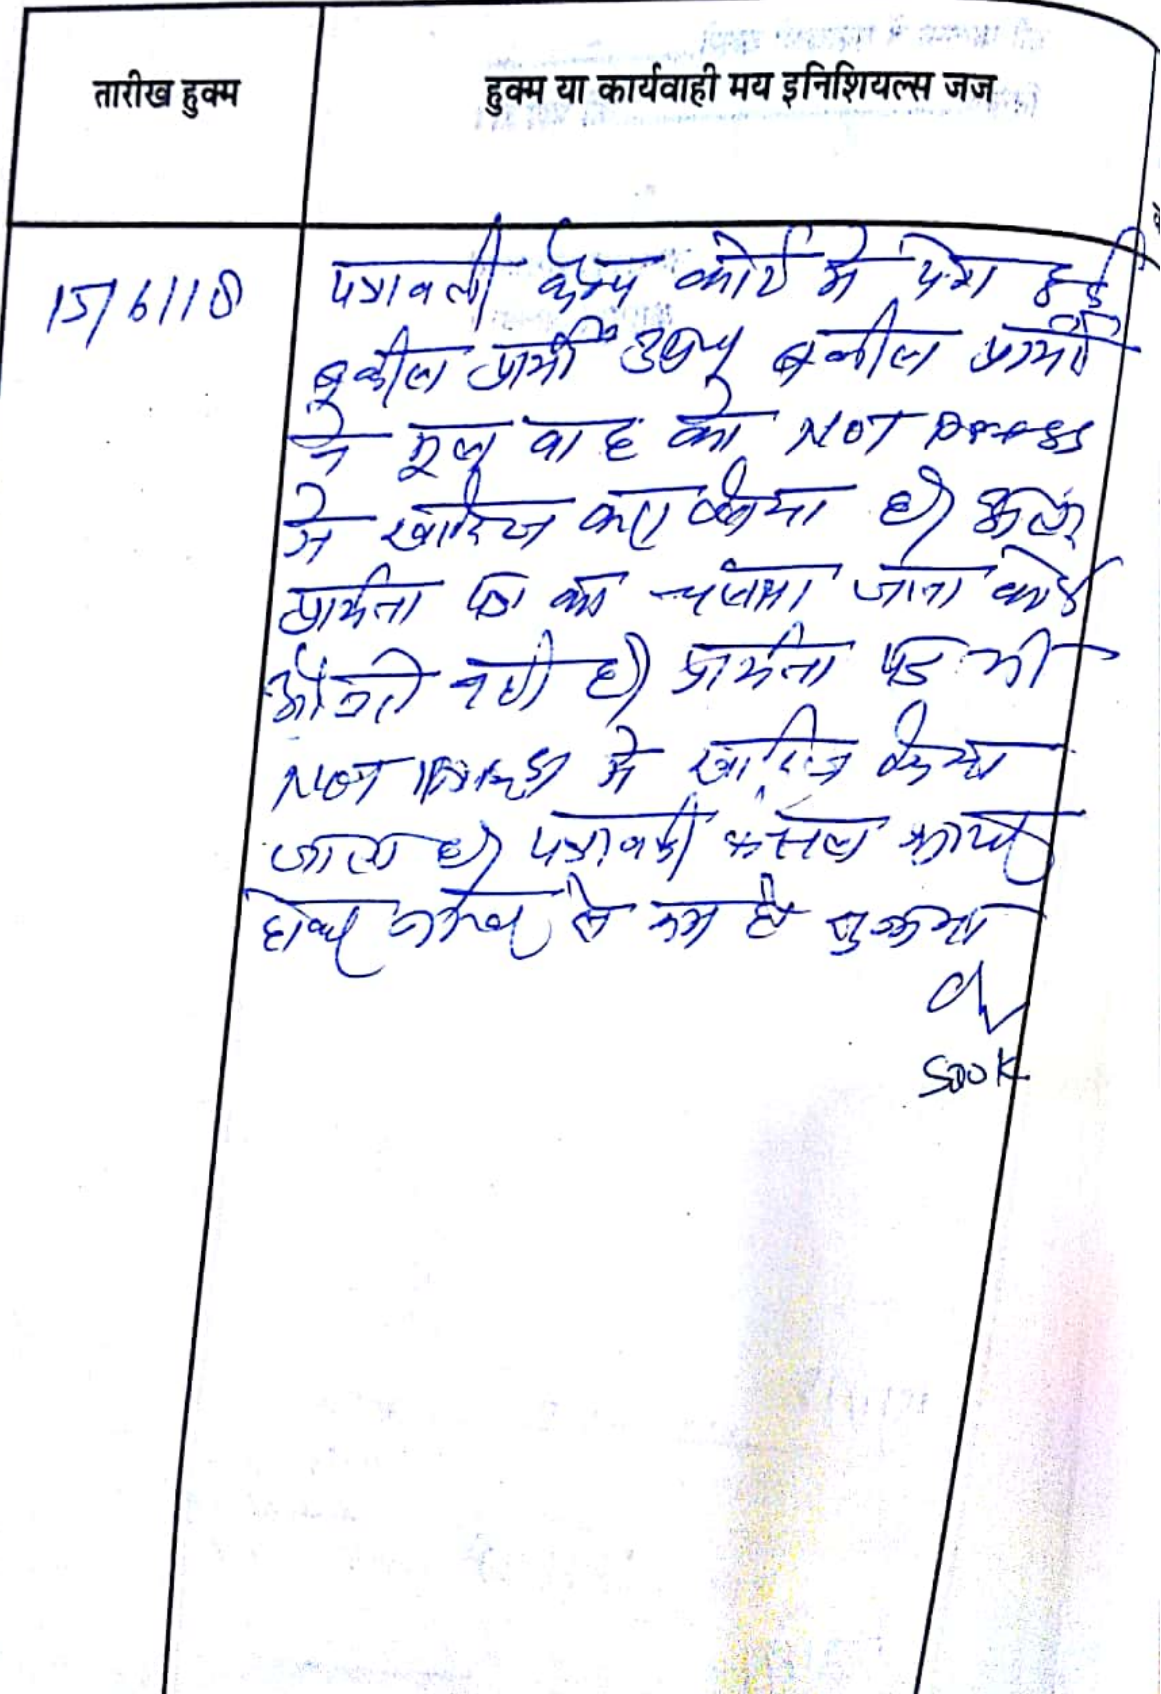 तारीख हुक्म
हुक्म या कार्यवाही मय इनिशियल्स जज
15/6/18
पत्रावली केम्प कोर्ट मे पेश हुई
वकील प्रार्थी उप० वकील प्रार्थी
ने मूल वाद को NOT Press
मे खारिज करा लिया है। अतः
प्रार्थना पत्र का चलाया जाना कोई
औचित्य नही है। प्रार्थना पत्र भी
NOT Press मे खारिज किया
जाता है। पत्रावली फैसल शुमार
होकर नम्बर से कम हो
SDO K